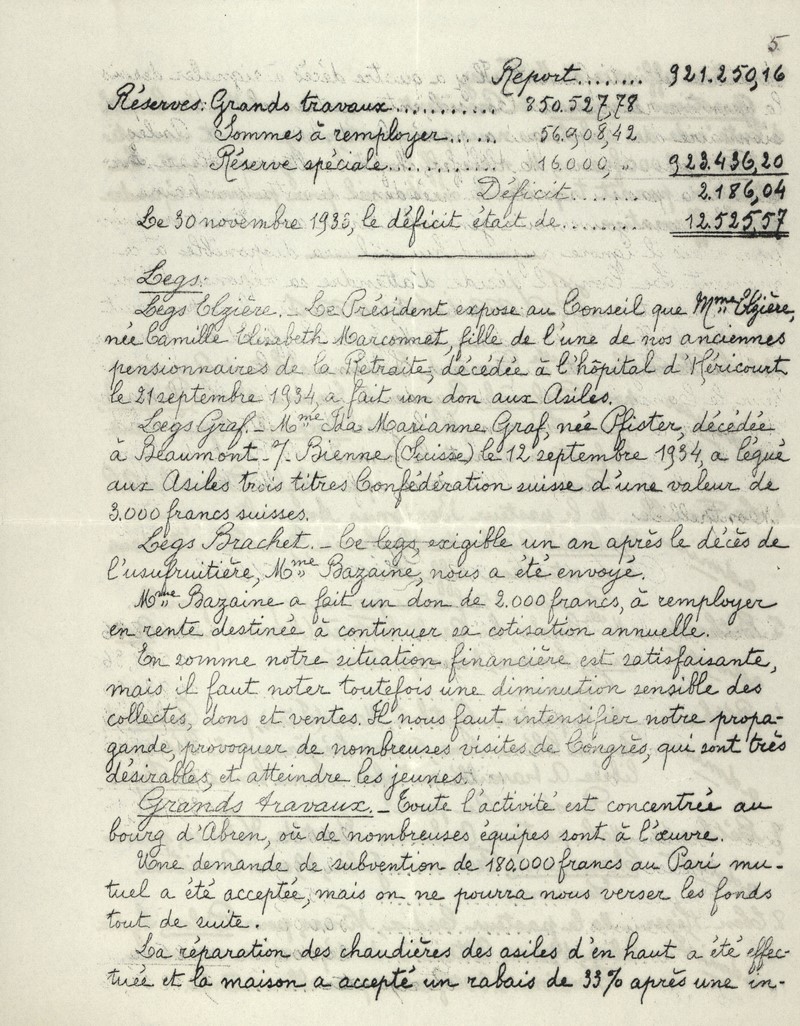 5
Report........ 921.250,16
Réserves: Grands travaux............ 850.527,78
Sommes à remployer...... 56.908,42
Réserve spéciale............ 16.000, „ 923.436,20
Déficit....... 2.186,04
Le 30 novembre 1933, le déficit était de........ 12.525,57
Legs:
Legs Elzière. _ Le Président expose au Conseil que Mme Elzière,
née Camille Elisabeth Marconnet, fille de l'une de nos anciennes
pensionnaires de la Retraite, décédée à l'hôpital d'Héricourt
le 21 septembre 1934, a fait un don aux Asiles.
Legs Graf. _ Mme Ida Marianne Graf, née Pfister, décédée
à Beaumont _ s/. Bienne (Suisse) le 12 septembre 1934, a légué
aux Asiles trois titres Confédération suisse d'une valeur de
3.000 francs suisses.
Legs Brachet. _ Ce legs, exigible un an après le décès de
l'usufruitière, Mme Bazaine, nous a été envoyé.
Mme Bazaine a fait un don de 2.000 francs, à remployer
en rente destinée à continuer sa cotisation annuelle.
En somme notre situation financière est satisfaisante,
mais il faut noter toutefois une diminution sensible des
collectes, dons et ventes. Il nous faut intensifier notre propa-
gande, provoquer de nombreuses visites de Congrès, qui sont très
désirables, et atteindre les jeunes.
Grands travaux. _ Toute l'activité est concentrée au
bourg d'Abren, où de nombreuses équipes sont à l'œuvre.
Une demande de subvention de 180.000 francs au Pari mu-
tuel a été acceptée, mais on ne pourra nous verser les fonds
tout de suite.
La réparation des chaudières des asiles d'en haut a été effec-
tuée et la maison a accepté un rabais de 33% après une in-